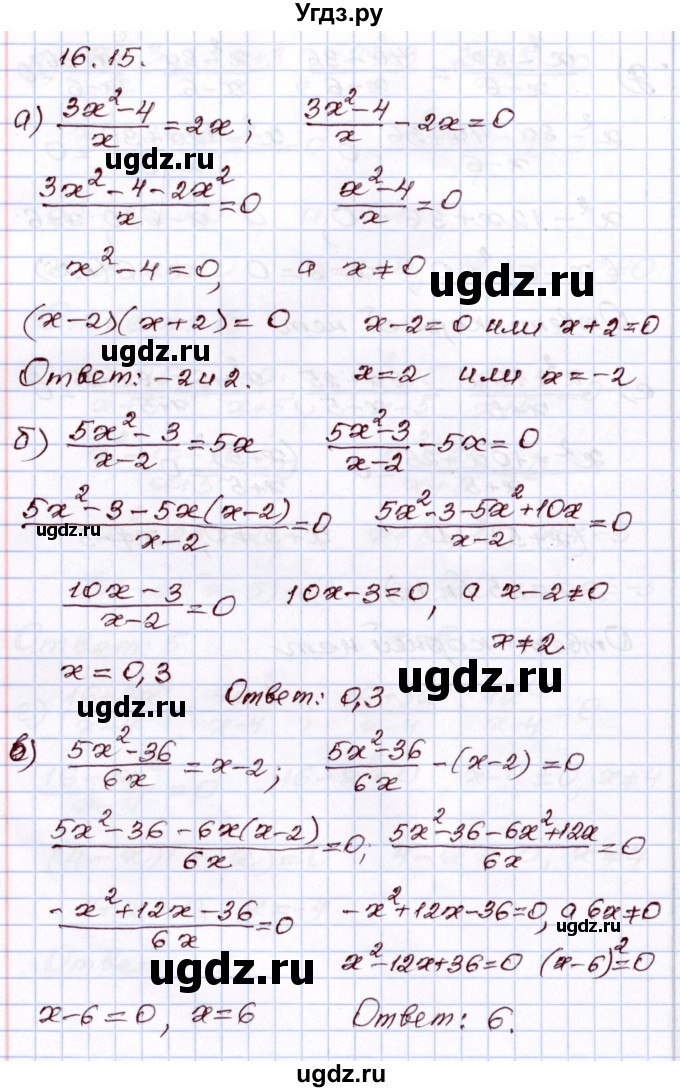 Угдз.ру
16.15.
а) (3x²-4)/x = 2x; (3x²-4)/x - 2x = 0
ugdz.ru
(3x²-4-2x²)/x = 0 (x²-4)/x = 0
x²-4=0, а x≠0
ugdz.ru
(x-2)(x+2)=0 x-2=0 или x+2=0
ugdz.ru
Ответ: -2 и 2. x=2 или x=-2
б) (5x²-3)/(x-2) = 5x (5x²-3)/(x-2) - 5x = 0
(5x²-3-5x(x-2))/(x-2) = 0 (5x²-3-5x²+10x)/(x-2) = 0
ugdz.ru
(10x-3)/(x-2) = 0 10x-3=0, а x-2≠0
x≠2
x=0,3 Ответ: 0,3
ugdz.ru
ugdz.ru
в) (5x²-36)/6x = x-2; (5x²-36)/6x - (x-2) = 0
(5x²-36-6x(x-2))/6x = 0; (5x²-36-6x²+12x)/6x = 0
(-x²+12x-36)/6x = 0 -x²+12x-36=0, а 6x≠0
ugdz.ru
x²-12x+36=0 (x-6)²=0
x-6=0, x=6 Ответ: 6.
ugdz.ru
ugdz.ru